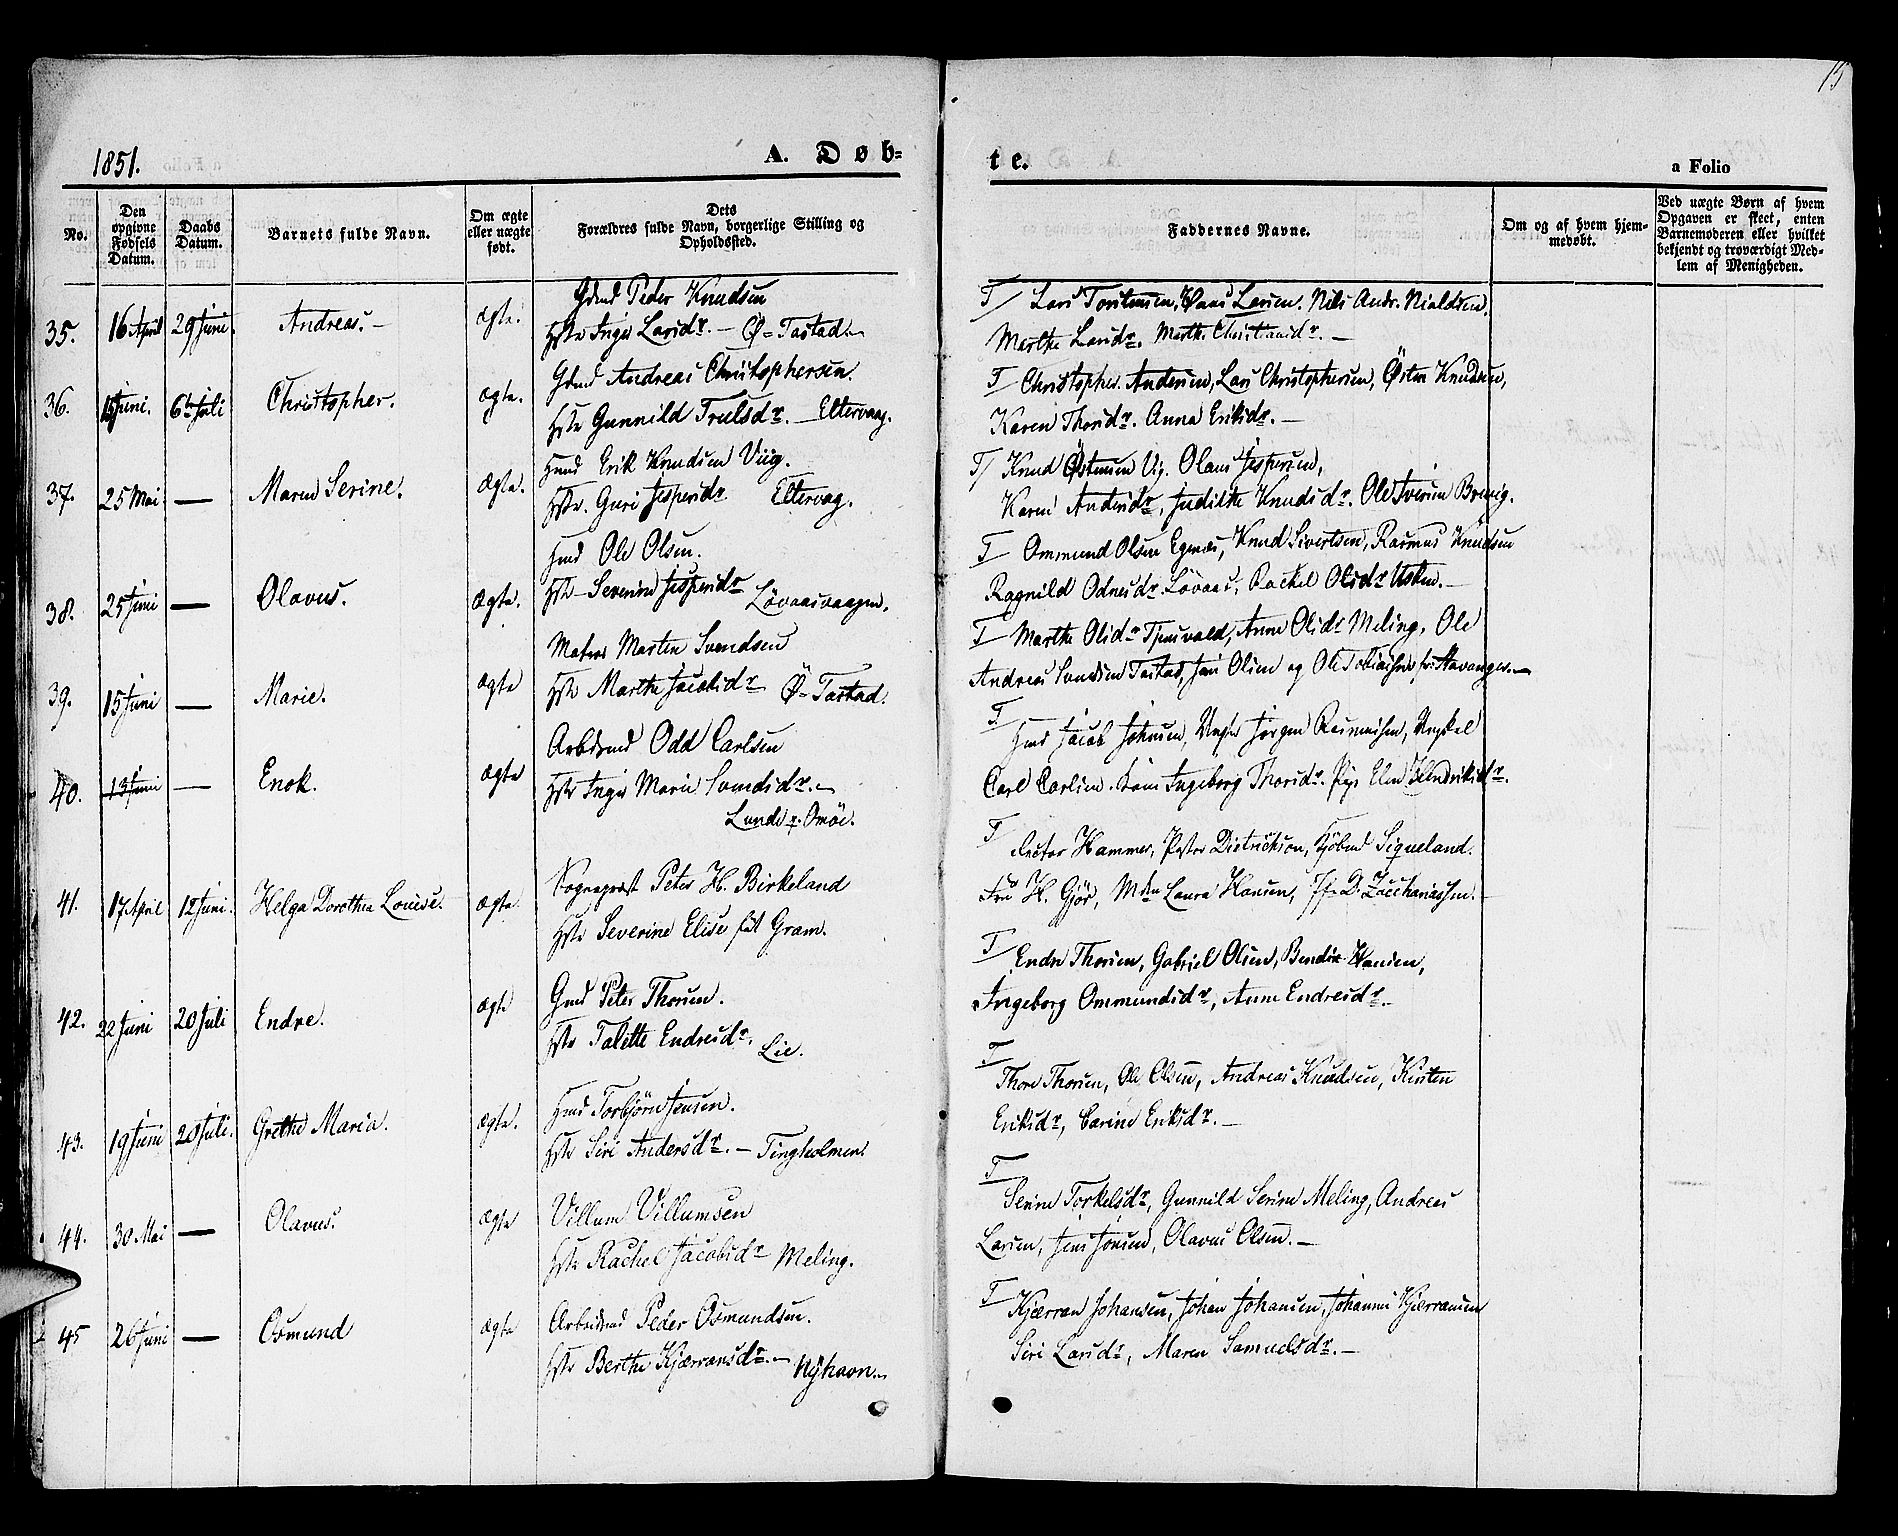 15
1851.
A. Døb=
te.
a Folio
No.
Den opgivne Fødsels Datum.
Daabs Datum.
Barnets fulde Navn.
Om ægte eller uægte født.
Dets Forældres fulde Navn, borgerlige Stilling og Opholdssted.
Faddernes Navne.
Om og af hvem hjemmedøbt.
Ved uægte Børn af hvem Opgaven er skeet, enten Barnemoderen eller hvilket bekjendt og troværdigt Medlem af Menigheden.
35. 16 April 29 Juni. Andreas. – ægte. Gdmd Peder Knudsen
Hstr Inger Larsdr. – Ø= Tastad. –
T/ Lars Torstensen, Larsen. Nils Andr. Nialdsen.
Marthe Larsdr. Marth. Christiansdr. –
36. Juni. 6te Juli Christopher. ægte. Gdmd Andreas Christophersen.
Hstr Gunnild Trulsdr. – Eltervaag.
T Christopher Andersen, Lars Christophersen, Östen Knudsen,
Karen Thorsdr. Anna Eriksdr. –
37. 25 Mai — Maren Serine. ægte. Hmd Erik Knudsen Viig.
Hstr. Guri Jespersdr Eltervag.
T/ Knud Östensen Vig. Olaus Jespersen,
Karen Andersdr, Judithe Knudsdr. Ole Iversen
38. 25 Juni — Olavus. ægte. Hmd Ole Olsen.
Hstr – Severine Jespersdr Lövaasvaagen.
T Ommund Olsen Egenæs, Knud Sivertsen, Rasmus Knudsen
Ragnild Odnesdr. Lövaas, Rachel Olsdr Usken. –
39. 15 Juni — Marie. ægte Matros Morten Svendsen
Hstr Marthe Jacobsdr Ø= Tastad.
T Marthe Olsdr Tjensvold, Anne Olsdr Meling, Ole
Andreas Svendsen Tastad, Jan Olsen og Ole Tobiassen fr. Stavanger. –
40. 13 Juni — Enok. ægte Arbdsmd Odd Carlsen
Hstr Inger Marie Svendsdr. –
Lunds p. Omöe.
T Hmd Jacob Johnsen, Ungkr Jörgen Rasmussen, Ungkel
Carl Carlsen. Kone Ingeborg Thorsdr. Pige Elen Hendriksdr.
41. 17 April 12 Juni. Helga Dorothea Louise. ægte Sognepræst Peter H. Birkeland
Hstr Severine Elise föt Gram.
T Rector Hammer, Pastor Dietrichson, Kjöbmd Sigueland.
Fru H. Gjör, Mdm Laura Hansen, Jfr D. Zacchariassen. –
42. 22 Juni 20 Juli Endre. ægte Gmd Peter Thorsen.
Hstr Talette Endresdr. Lie.
T Endre Thorsen, Gabriel Olsen, Bendix Hansen,
Ingeborg Ommundsdr, Anne Endresdr. –
43. 19 Juni 20 Juli. Grethe Maria. ægte. Hmd Torbjörn Jensen.
Hstr Siri Andersdr. – Tingholmen.
T Thore Thorsen, Ole Olsen, Andreas Knudsen, Kirsten
Eriksdr, Carine Eriksdr. –
44. 30 Mai — Olavus. ægte Villum Villumsen
Hstr Rachel Jacobsdr Meling.
T Serine Torkelsdr, Gunnild Serine Meling, Andreas
Larsen, Jens Jonsen, Olavus Olsen. –
45 26 Juni — Osmund ægte Arbeidsmd Peder Osmundsen.
Hstr Berthe Kjærransdr. – Nÿhavn. –
T Kjærran Johansen, Johan Johansen, Johannes Kjærransen
Siri Larsdr, Maren Samuelsdr. –